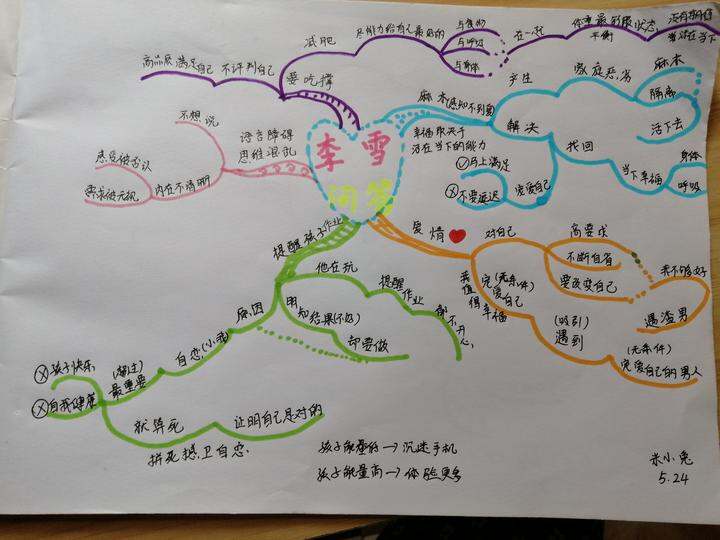 李雪
问答
要吃撑
减肥
不评判自己
高品质满足自己
尽能力给自己最好的
与食物
与呼吸
与身体
在一起
平衡
活在当下
麻木感知不到爱
幸福取决于
活在当下的能力
产生
解决
麻木
隔离
活下去
找回
当下幸福
身体
呼吸
宠爱自己
马上满足
不要延迟
语言障碍
思维混乱
不想说
内在不清晰
感受被否认
需求被无视
爱情
对自己
高要求
不断自省
要改变自己
我不够好
遇渣男
完(无条件)
爱自己
我值得幸福
(吸引)
遇到
(无条件)
完爱自己的男人
提醒孩子作业
他在玩
提醒作业
都不开心
明知结果(不好)
却要做
原因
自恋(小我)
(胜过)
最重要
孩子快乐
自我健康
犹算死
证明自己是对的
拼死捍卫自恋
孩子能量低→沉迷手机
孩子能量高→体验更多
米小兔
5.24